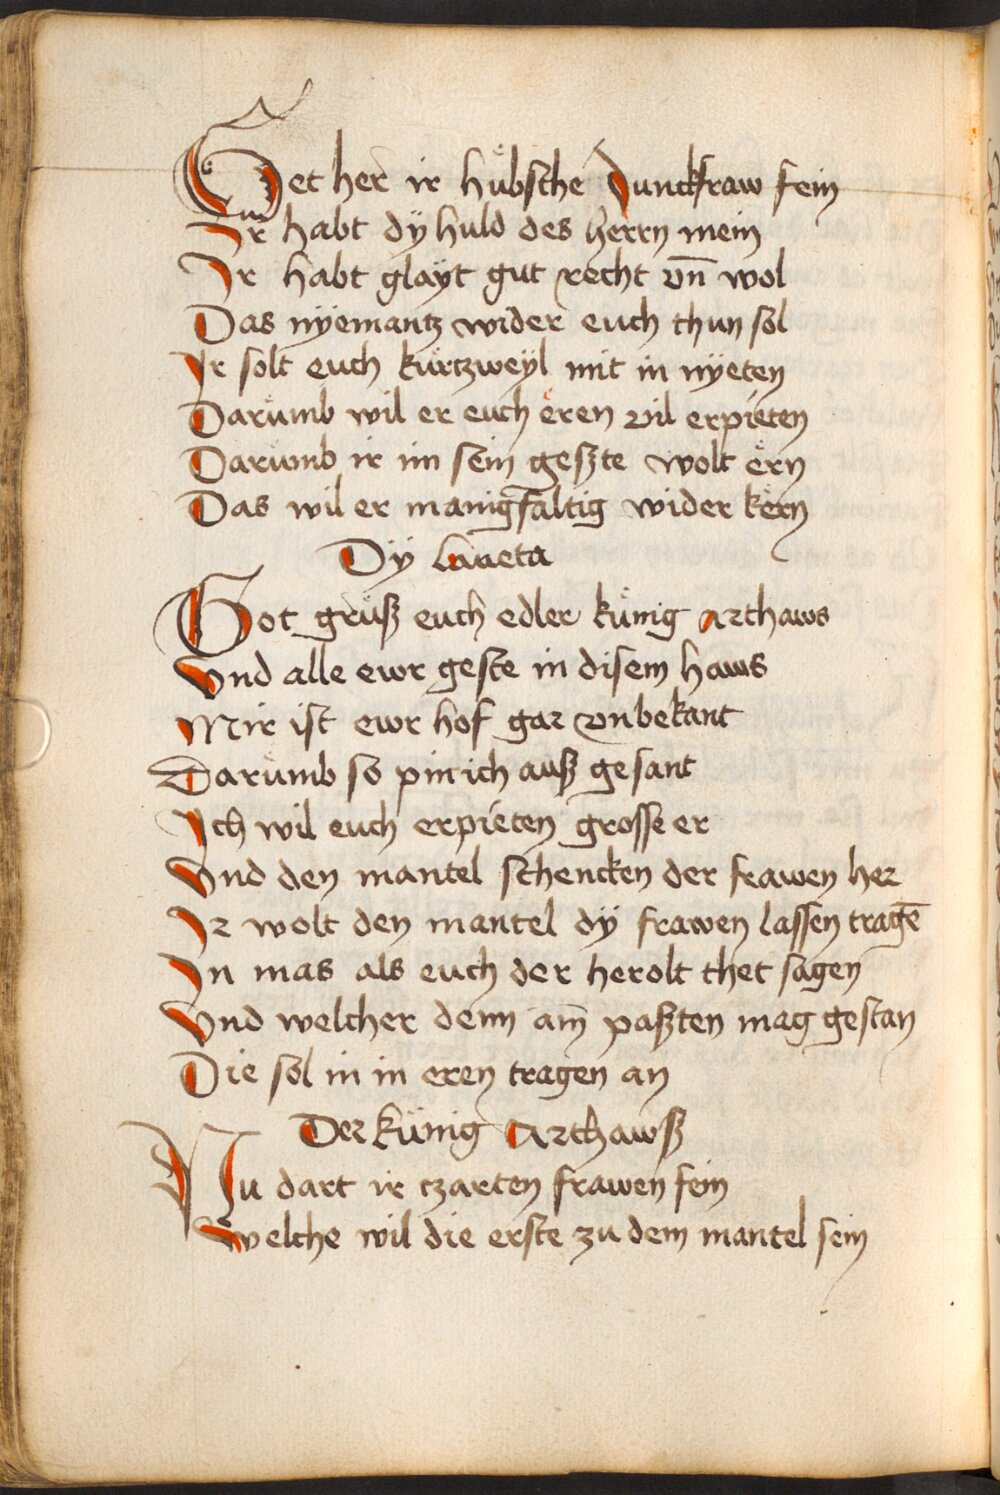 Get her ir hübsche Junckfraw fein
Ir habt dÿ huld des herrn mein
Ir habt glaÿt gut recht vn̄ wol
Das nÿemantz wider euch thun sol
Ir solt euch kürtzweÿl mit in nÿeten
Darümb wil er euch eren vil erpieten
Darümb ir im sein geßte wolt ern
Das wil er manigfaltig wider kern
Dÿ Laneta
Got grüß euch edler künig Arthaws
Vnd alle ewr geste in disem haws
Mir ist ewr hof gar vnbekant
Darümb so pin ich auß gesant
Ich wil euch erpieten grosse er
Vnd den mantel schencken der frawen her
Ir wolt den mantel dÿ frawen lassen tragē
In mas als euch der herolt thet sagen
Vnd welcher denn am̄ paßten mag gestan
Die sol in in eren tragen an
Der künig Arthawß
Nu dart ir czarten frawen fein
Welche wil die erste zu dem mantel sein